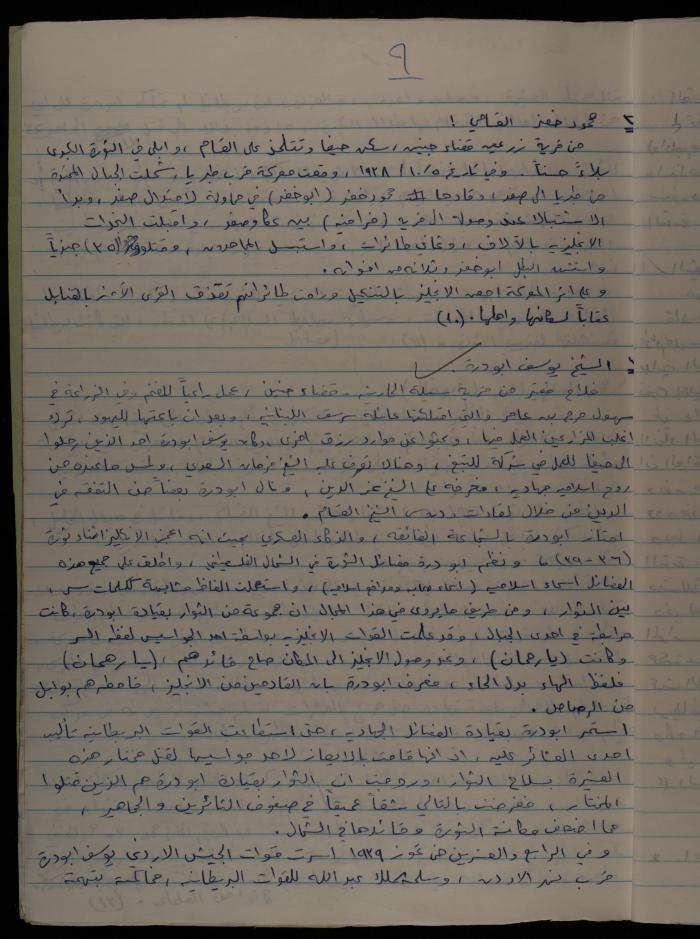 ٩
٣ محمود خضر القاحي !
من قرية زرعين قضاء جنين، سكن حيفا وتتلمذ على القسام، وابلى في الثورة الكبرى
بلاءً حسناً. وفي تاريخ ١٩٣٨/١٠/٥، وقعت معركة قرب طبريا، شملت الجبال الممتدة
من طبريا الى صفد، وقادها محمود خضر (ابو خضر) في محاولة لاحتلال صفد، وبدأ
الاشتباك عند وصوله الى قرية (فراضية) بين عكا وصفد، واقبلت النجدات
الانجليزية بالآلاف، وثماني طائرات، واستبسل المجاهدون، وقتلوا (٣٥) جندياً
واستشهد البطل ابو خضر وثلاثة من اخوانه.
وعلى اثر المعركة امعن الانجليز بالتنكيل وراحت طائراتهم تقذف القرى الآمنة بالقنابل
عقاباً لسكانها واهلها. (١٠)
٤ الشيخ يوسف ابو درة.
فلاح فقير من قرية سيلة الحارثية - قضاء جنين، عمل راعياً للغنم وفي الزراعة في
سهول مرج بن عامر والتي امتلكتها عائلة سرسق اللبنانية، وبعد ان باعتها لليهود، ترك
اغلب المزارعين العمل فيها، وبحثوا عن موارد رزق اخرى، وكان يوسف ابو درة احد الذين رحلوا
الى حيفا للعمل في شركة للتبغ، وهناك تعرف عليه الشيخ فرحان السعدي، ولمس ما عنده من
روح اسلامية جهادية، فعرفه على الشيخ عز الدين، ونال ابو درة بعضاً من التفقه في
الدين من خلال لقاءات ودروس الشيخ القسام.
امتاز ابو درة بالشجاعة الفائقة، والذكاء العسكري بحيث انه اعجز الانجليز اثناء ثورة
(٣٦-٣٩) م ونظم ابو درة فصائل الثورة في الشمال الفلسطيني، واطلق على جميع هذه
الفصائل اسماء اسلامية (اسماء صحابة ومواقع اسلامية)، واستعملت الفاظ مشابهة ككلمات سر،
بين الثوار، ومن طريف ما يروى في هذا المجال ان مجموعة من الثوار بقيادة ابو درة، كانت
مرابطة في احدى الجبال، وقد علمت القوات الانجليزية بواسطة احد الجواسيس لفظة السر
وكانت (يا رحمان)، وعند وصول الانجليز الى المكان صاح قائدهم، (يا رهمان)
فلفظ الهاء بدل الحاء، فعرف ابو درة بان القادمين من الانجليز، فامطرهم بوابل
من الرصاص.
استمر ابو درة بقيادة الفصائل الجهادية، حتى استطاعت القوات البريطانية تأليب
احدى العشائر عليه، اذ انها قامت بالايعاز لاحد جواسيسها لقتل مختار هذه
العشيرة بسلاح الثوار، وروجت ان الثوار بقيادة ابو درة هم الذين قتلوا
المختار، ففرضت بالتالي شقاً عميقاً في صفوف الثائرين والجماهير،
مما اضعف مكانة الثورة وقائدها في الشمال.
وفي الرابع والعشرين من تموز ١٩٣٩ اسرت قوات الجيش الاردني يوسف ابو درة
قرب نهر الاردن، وسلمه الملك عبد الله للقوات البريطانية، محاكمة بتهمة